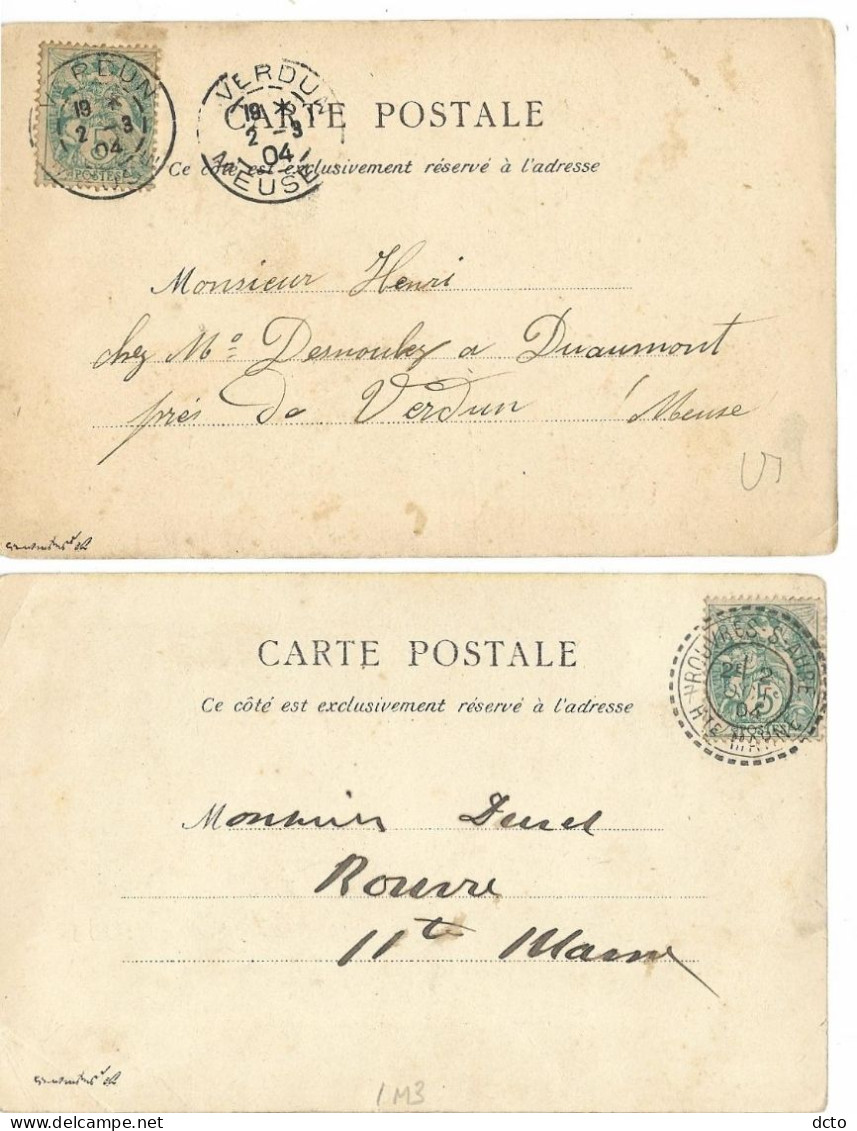 VERDUN
19 *
2 - 3
04
MEUSE
5
POSTES
VERDUN
19 *
2 - 3
04
MEUSE
CARTE POSTALE
Ce côté est exclusivement réservé à l'adresse
Monsieur Henri
chez Mo Desnoulez a Duaumont
près de Verdun Meuse
CARTE POSTALE
Ce côté est exclusivement réservé à l'adresse
ROUVRES-S-AUBE
2
5
04
HTE MARNE
Monsieur
Rouvre
Hte Marne
1 M3
dcto